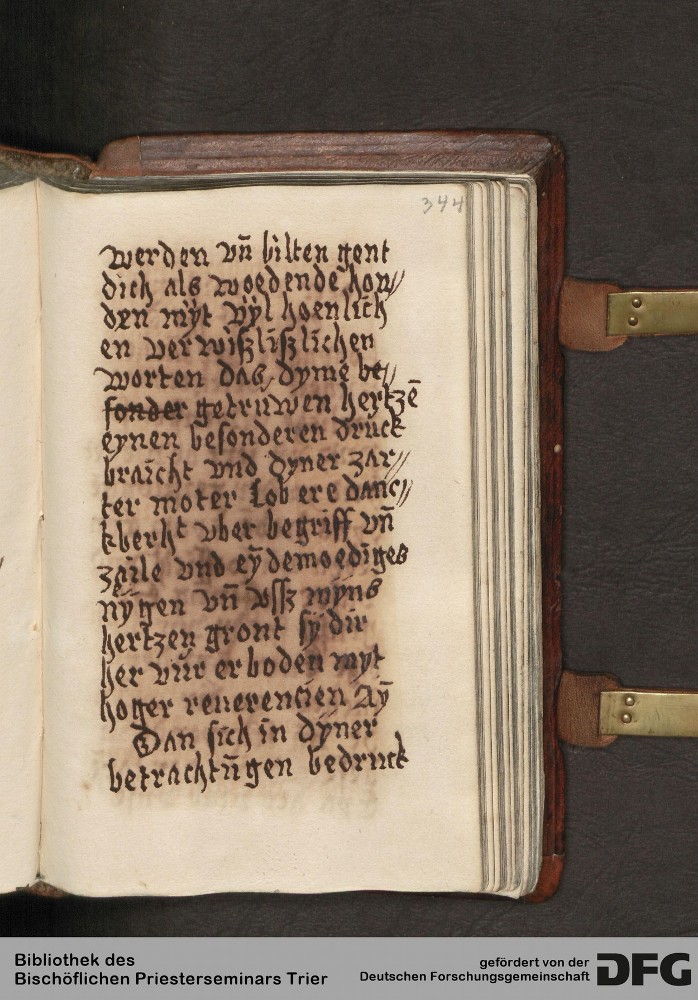 344
werden vn̄ bilten gent
dich als woedende hon//
den myt vyl hoenlich
en verwißlißlichen
worten das dyme be//
sonder getruwen hertzē
eynen besonderen druck
braicht vnd dyner zar//
ter moter Lob ere danc//
kberht vber begriff vn̄
zaile vnd eȳ demoediges
nygen vn̄ vsß myns
hertzen gront sy dir
her vur erboden myt
hoger reuerencien Aȳ
Dan sich in dyner
betrachtūgen bedruck
Bibliothek des
Bischöflichen Priesterseminars Trier
gefördert von der
Deutschen Forschungsgemeinschaft
DFG